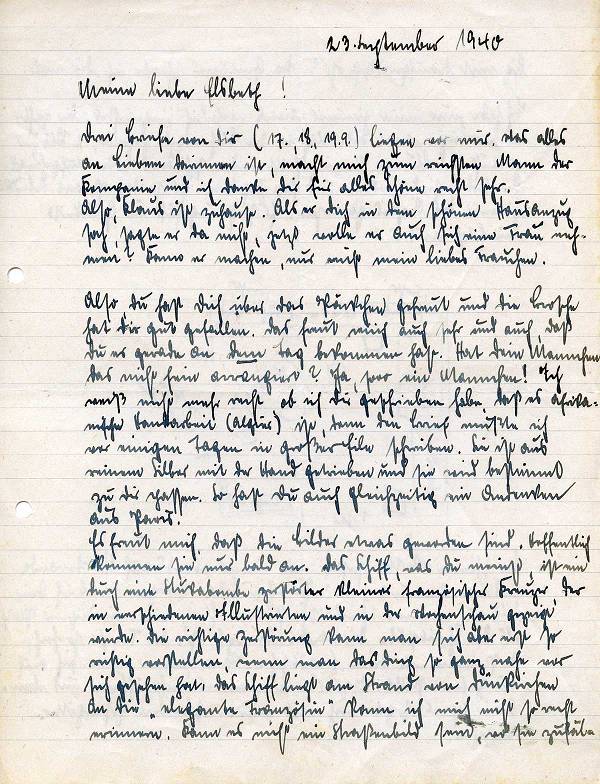 23. September 1940
Meine liebe Elsbeth!
Drei Briefe von Dir (17., 18., 19.9.) liegen vor mir. Was alles
an Liebem darinnen ist, macht mich zum reichsten Mann der
Kompanie und ich danke Dir für alles Schöne recht sehr.
Also, Klaus ist zuhause. Als er Dich in dem schönen Hausanzug
sah, sagte er da nicht, jetzt wolle er auch sich eine Frau neh-
men? Kann er machen, nur nicht mein liebes Frauchen.
Also Du hast Dich über das Päckchen gefreut und die Brosche
hat Dir gut gefallen. Das freut mich auch sehr und auch daß
Du es gerade an dem Tag bekommen hast. Hat Dein Mannchen
das nicht fein arrangiert? Ja, sooo ein Mannchen! Ich
weiß nicht mehr recht ob ich Dir geschrieben habe, daß es afrika-
nische Handarbeit (Algier) ist, denn den Brief mußte ich
vor einigen Tagen in großer Eile schreiben. Sie ist aus
reinem Silber mit der Hand getrieben und sie wird bestimmt
zu Dir passen. So hast Du auch gleichzeitig ein Andenken
aus Paris.
Es freut mich, daß die Bilder etwas geworden sind. Hoffentlich
kommen sie nur bald an. Das Schiff, was Du meinst ist ein
durch eine Stukabombe zerstörter kleiner französischer Kreuzer, der
in verschiedenen Illustrierten und in der Wochenschau gezeigt
wurde. Die richtige Zerstörung kann man sich aber erst so
richtig vorstellen, wenn man das Ding so ganz nahe vor
sich gesehen hat. Das Schiff liegt am Strand von Dünkirchen
An die "elegante Französin" kann ich mich nicht so recht
erinnern. Kann es nicht ein Straßenbild sein, wo sie zufäl-